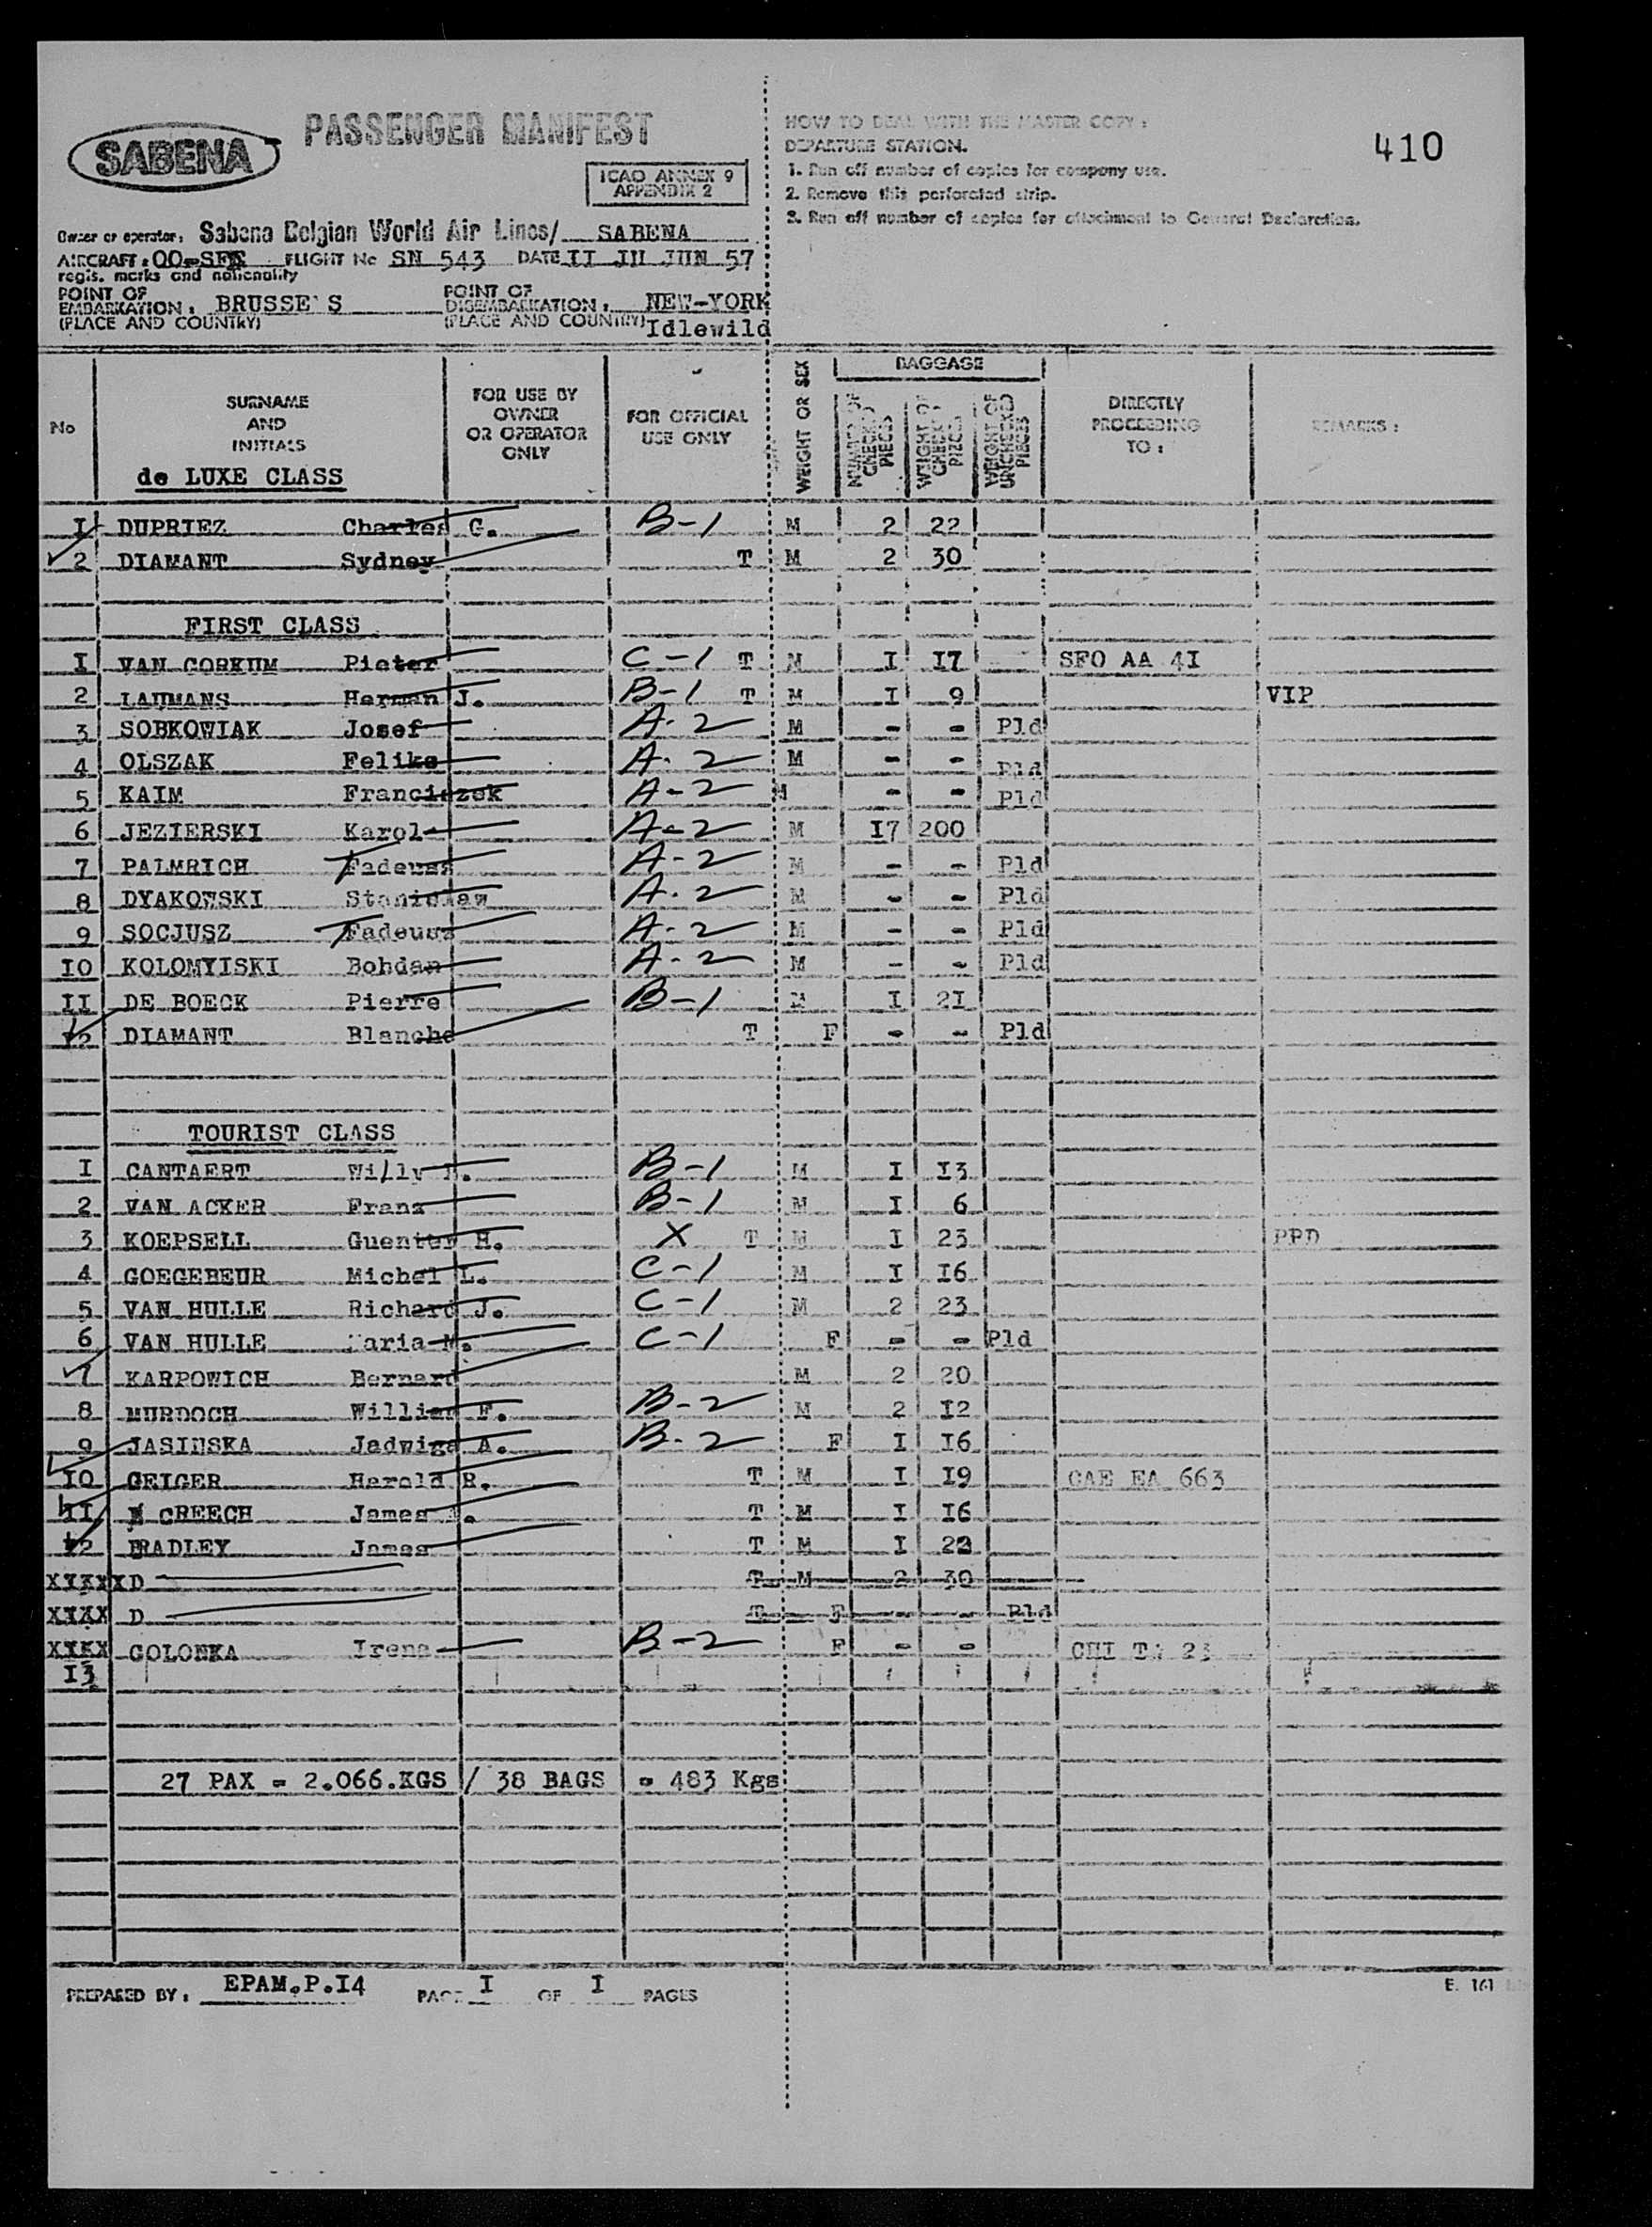 410
SABENA
PASSENGER MANIFEST
ICAO ANNEX 9
APPENDIX 2
HOW TO DEAL WITH THE MASTER COPY :
DEPARTURE STATION.
1. Run off number of copies for company use.
2. Remove this perforated strip.
3. Run off number of copies for attachment to General Declaration.
Owner or operator: Sabena Belgian World Air Lines/ SABENA
AIRCRAFT : FLIGHT No SN 543 DATE II JUN 57
regis. marks and nationality
POINT OF EMBARKATION : BRUSSE S
(PLACE AND COUNTRY)
POINT OF DISEMBARKATION : NEW-YORK
(PLACE AND COUNTRY) Idlewild
No
SURNAME AND INITIALS
FOR USE BY OWNER OR OPERATOR ONLY
FOR OFFICIAL USE ONLY
WEIGHT OR SEX
BAGGAGE
NUMBER OF CHECKED PIECES
WEIGHT OF CHECKED PIECES
WEIGHT OF UNCHECKED PIECES
DIRECTLY PROCEEDING TO :
REMARKS :
de LUXE CLASS
I DUPRIEZ Charles G. B-1 M 2 22
2 DIAMANT Sydney T M 2 30
FIRST CLASS
I VAN GORKUM Pieter C-1 T M I I7 SFO AA 4I
2 LAUMANS Herman J. B-1 T M I 9 VIP
3 SOBKOWIAK Josef A-2 M - - Pld
4 OLSZAK Feliks A-2 M - - Pld
5 KAIM Franciszek A-2 M - - Pld
6 JEZIERSKI Karol A-2 M I7 200
7 PALMRICH Tadeusz A-2 M - - Pld
8 DYAKOWSKI Stanislaw A-2 M - - Pld
9 SOCJUSZ Tadeusz A-2 M - - Pld
IO KOLOMYISKI Bohdan A-2 M - - Pld
II DE BOECK Pierre B-1 M I 2I
I2 DIAMANT Blanche T F - - Pld
TOURIST CLASS
I CANTAERT Willy B-1 M I I3
2 VAN ACKER Frans B-1 M I 6
3 KOEPSELL Guenter H. X T M I 23 PPD
4 GOEGEBEUR Michel L. C-1 M I I6
5 VAN HULLE Richard J. C-1 M 2 23
6 VAN HULLE Maria M. C-1 F - - Pld
7 KARPOWICH Bernard M 2 20
8 MURDOCH William F. B-2 M 2 I2
9 JASINSKA Jadwiga A. B-2 F I I6
IO GEIGER Harold R. T M I I9 CAE EA 663
II CREECH James T M I I6
I2 BRADLEY James T M I 22
XXXXX D T M 2 30
XXXX D T F - - Pld
XXXX GOLONKA Irena B-2 F - - CHI
I3
27 PAX = 2.066.KGS / 38 BAGS = 483 Kgs
PREPARED BY : EPAM.P.I4 PAGE I OF I PAGES
E. 161